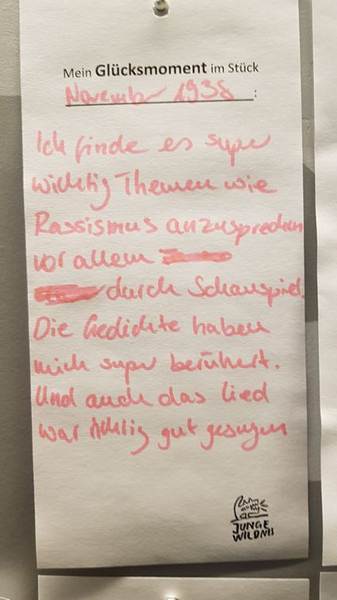 Mein Glücksmoment im Stück
November 1938 :
Ich finde es super
wichtig Themen wie
Rassismus anzusprechen
vor allem
durch Schauspiel.
Die Gedichte haben
mich super berührt.
Und auch das Lied
war richtig gut gesungen
JUNGE
WILDNIS